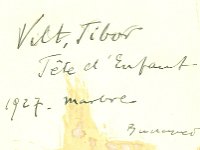 Vilt, Tibor
Tête d'Enfant-
1927. marbre